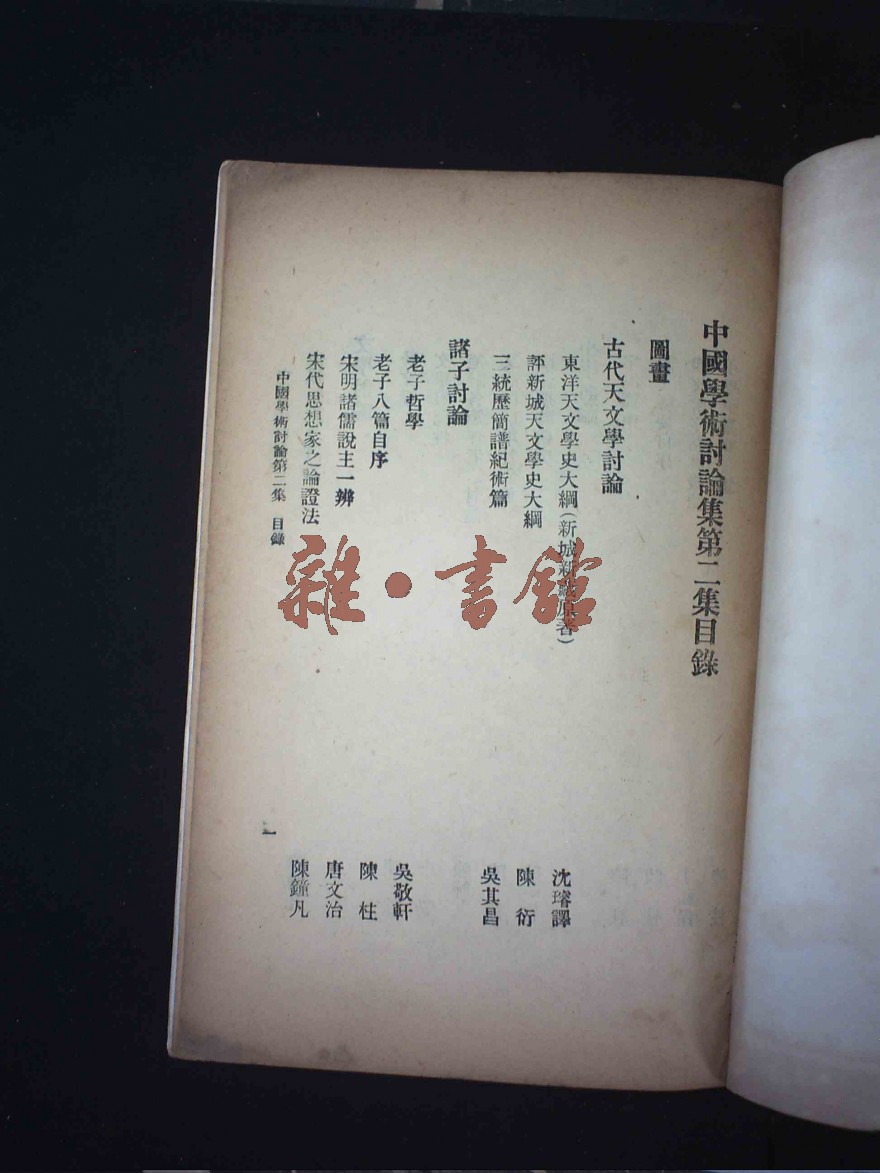 中國學術討論集第二集目錄
圖畫
古代天文學討論
東洋天文學史大綱(新城新藏原著) 沈璿譯
評新城天文學史大綱 陳衍
三統歷簡譜紀術篇 吳其昌
諸子討論
老子哲學 吳敬軒
老子八篇自序 陳柱
宋明諸儒說主一辨 唐文治
宋代思想家之論證法 陳鐘凡
中國學術討論第二集 目錄 一
雜·書館